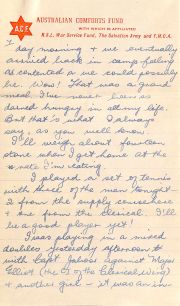 AUSTRALIAN COMFORTS FUND
WITH WHICH IS AFFILIATED
R.S.L. War Service Fund, The Salvation Army and Y.M.C.A.
ACF
day morning & we eventually
arrived back in camp feeling
as contented as we could possibly
be. Wow! That was a grand
meal. I've never been so
darned hungry in all my life.
But that's what I always
say, as you well know.
I'll weigh about fourteen
stone when I get home at the
rate I'm eating.
I played a set of tennis
with three of the men tonight –
2 from the supply
& one from the clerical. I'll
be a good player yet!
I was playing in a mixed
doubles yesterday afternoon
with Capt. against Major
Elliott (the O.C. of the Clerical Wing)
& another girl – it was an